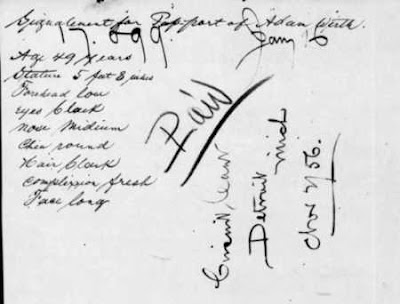 Signalement for Passport of Adam Wirth.
17.899
Jany 6
Age 49 years
Stature 5 feet 8 inches
Forehead low
eyes Black
nose Midium
Chin round
Hair Black
Complexion fresh
Face long
Paid
Circuit Court
Detroit Mich
Nov 7/56.